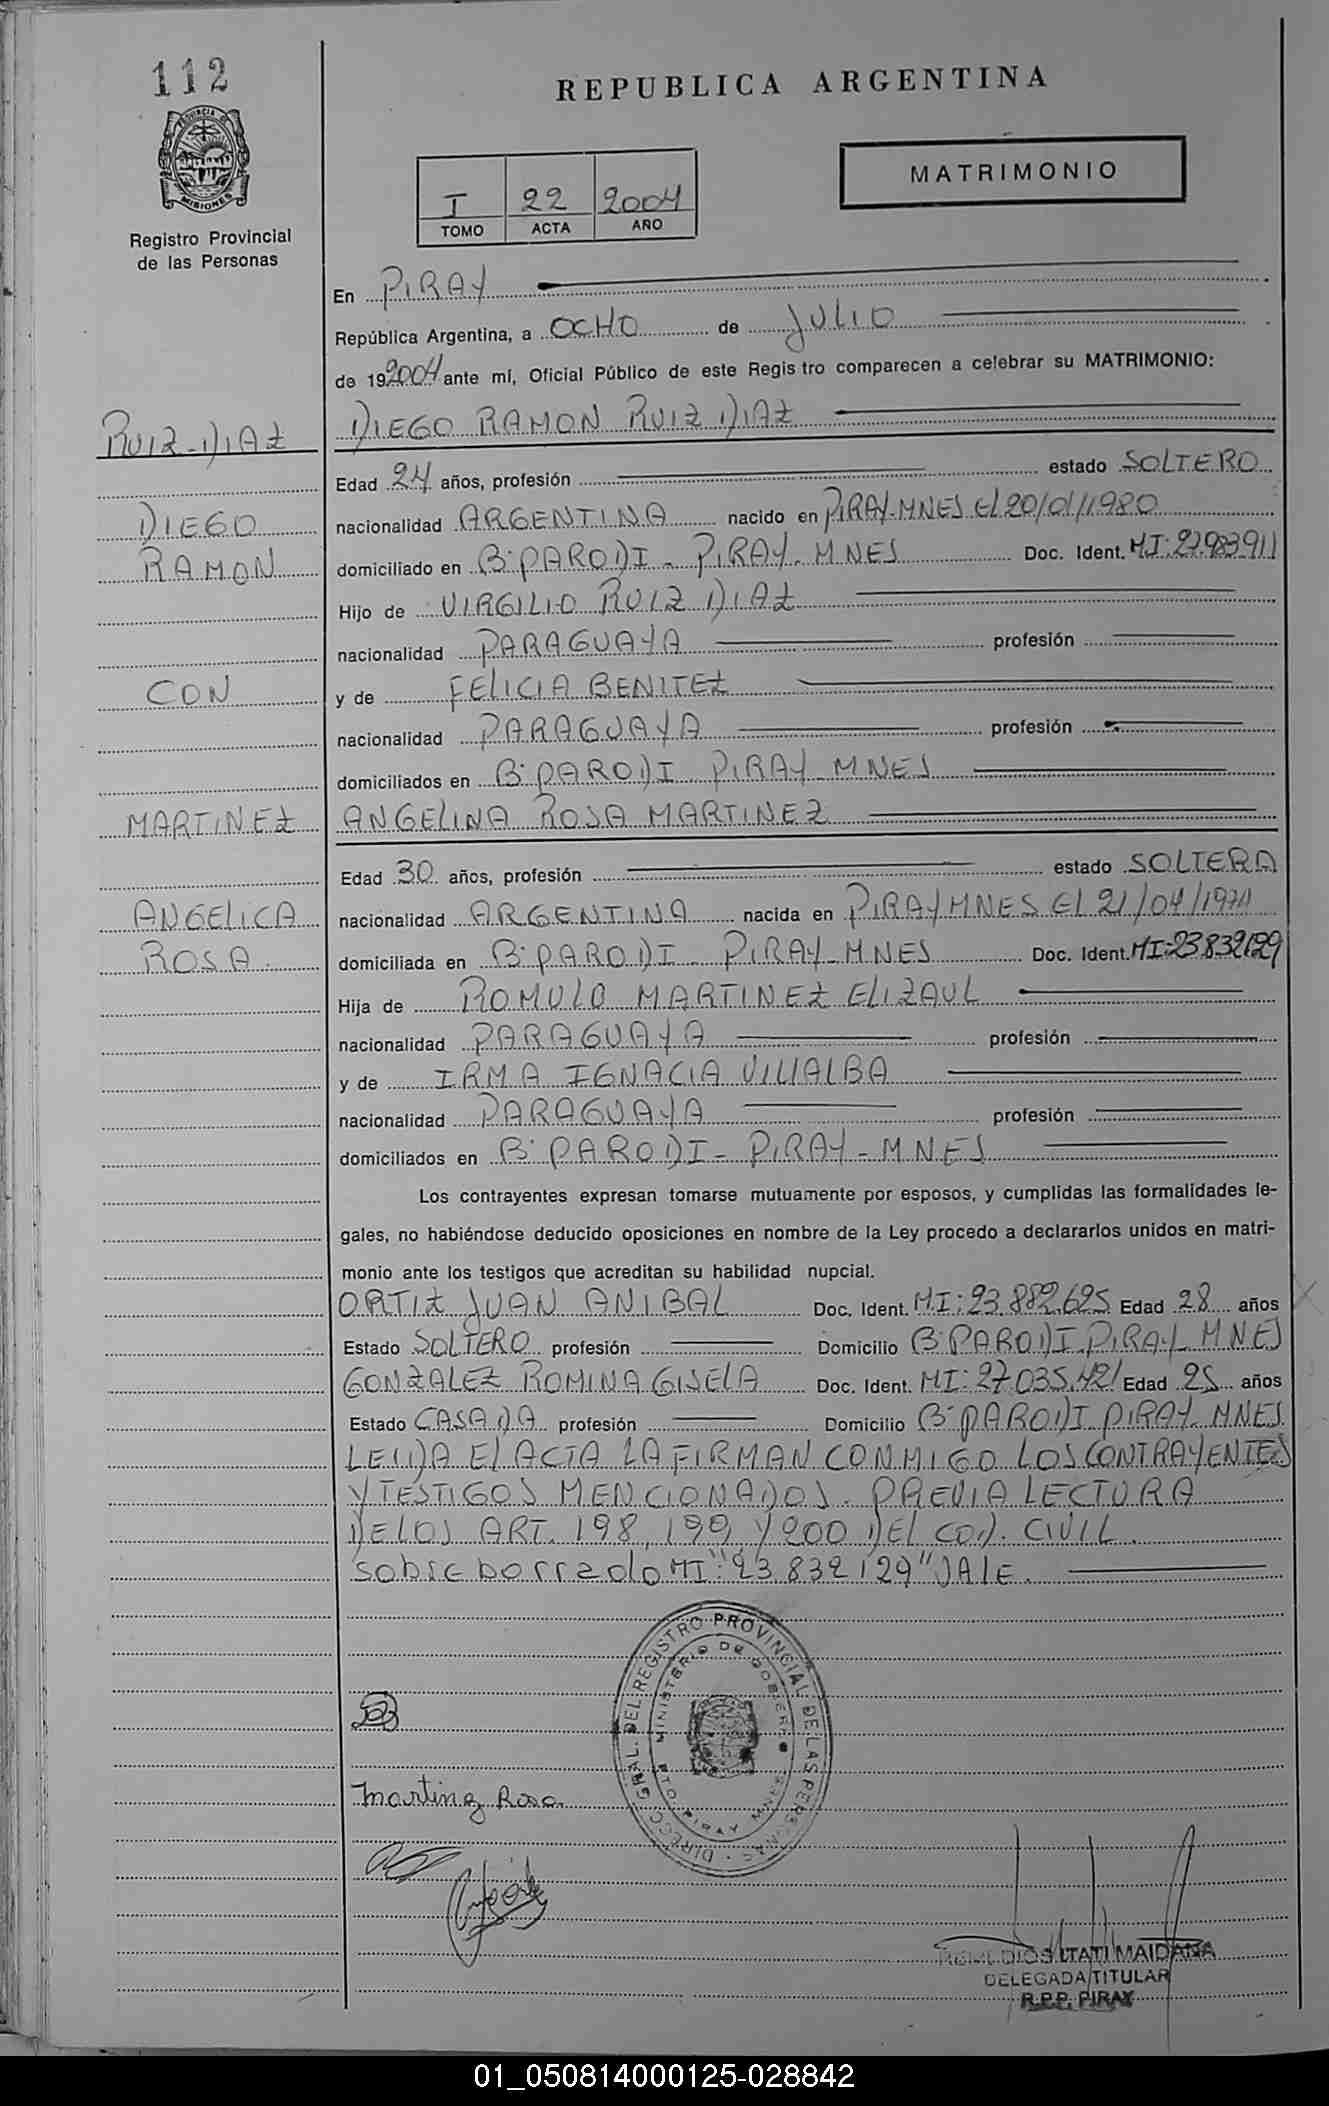 112
PROVINCIA DE
MISIONES
Registro Provincial
de las Personas
REPUBLICA ARGENTINA
MATRIMONIO
I 22 2004
TOMO ACTA AÑO
En PIRAY
República Argentina, a OCHO de JULIO
de 192004 ante mí, Oficial Público de este Registro comparecen a celebrar su MATRIMONIO:
RUIZ-DIAZ
DIEGO RAMON RUIZ DIAZ
Edad 24 años, profesión estado SOLTERO
DIEGO
nacionalidad ARGENTINA nacido en PIRAY-MNES El 20/01/1980
RAMON
domiciliado en B° PARODI - PIRAY - MNES Doc. Ident. MI: 27.983.911
Hijo de VIRGILIO RUIZ DIAZ
nacionalidad PARAGUAYA profesión
CON
y de FELICIA BENITEZ
nacionalidad PARAGUAYA profesión
domiciliados en B° PARODI PIRAY - MNES
MARTINEZ
ANGELINA ROSA MARTINEZ
Edad 30 años, profesión estado SOLTERA
ANGELICA
nacionalidad ARGENTINA nacida en PIRAY MNES El 21/04/1974
ROSA
domiciliada en B° PARODI - PIRAY - MNES Doc. Ident. MI: 23.832129
Hija de ROMULO MARTINEZ ELIZAUL
nacionalidad PARAGUAYA profesión
y de IRMA IGNACIA VILLALBA
nacionalidad PARAGUAYA profesión
domiciliados en B° PARODI - PIRAY - MNES
Los contrayentes expresan tomarse mutuamente por esposos, y cumplidas las formalidades le-
gales, no habiéndose deducido oposiciones en nombre de la Ley procedo a declararlos unidos en matri-
monio ante los testigos que acreditan su habilidad nupcial.
ORTIZ JUAN ANIBAL Doc. Ident. M.I: 23.882.625 Edad 28 años
Estado SOLTERO profesión Domicilio B° PARODI PIRAY - MNES
GONZALEZ ROMINA GISELA Doc. Ident. MI: 27.035.421 Edad 25 años
Estado CASADA profesión Domicilio B° PARODI PIRAY - MNES
LEIDA El ACTA LA FIRMAN CONMIGO LOS CONTRAYENTES
Y TESTIGOS MENCIONADOS. PREVIA LECTURA
DE LOS ART. 198, 199, Y 200 DEL COD. CIVIL.
sobre borrado MI: "23.832129" VALE.
DIRECC. GRAL. DEL REGISTRO PROVINCIAL DE LAS PERSONAS
MINISTERIO DE GOBIERNO
PTO. PIRAY MNES
Martinez Rosa
REMEDIOS ITATI MAIDANA
DELEGADA TITULAR
R.P.P. PIRAY
01_050814000125-028842